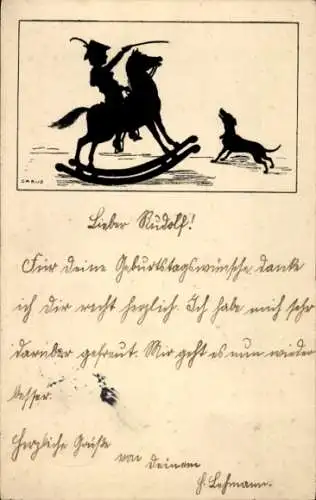 CARUS
Lieber Rudolf!
Für deine Geburtstagswünsche danke
ich dir recht herzlich. Ich habe mich sehr
darüber gefreut. Mir geht es nun wieder
besser.
Herzliche Grüße
von deinem
H. Lehmann.